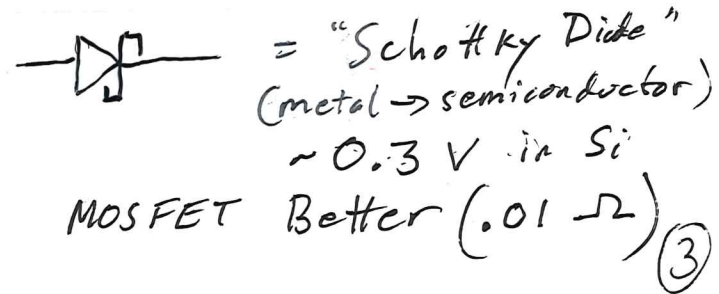 = "Schottky Diode"
(metal → semiconductor)
~ 0.3 V in Si
MOSFET Better (.01 Ω)
3